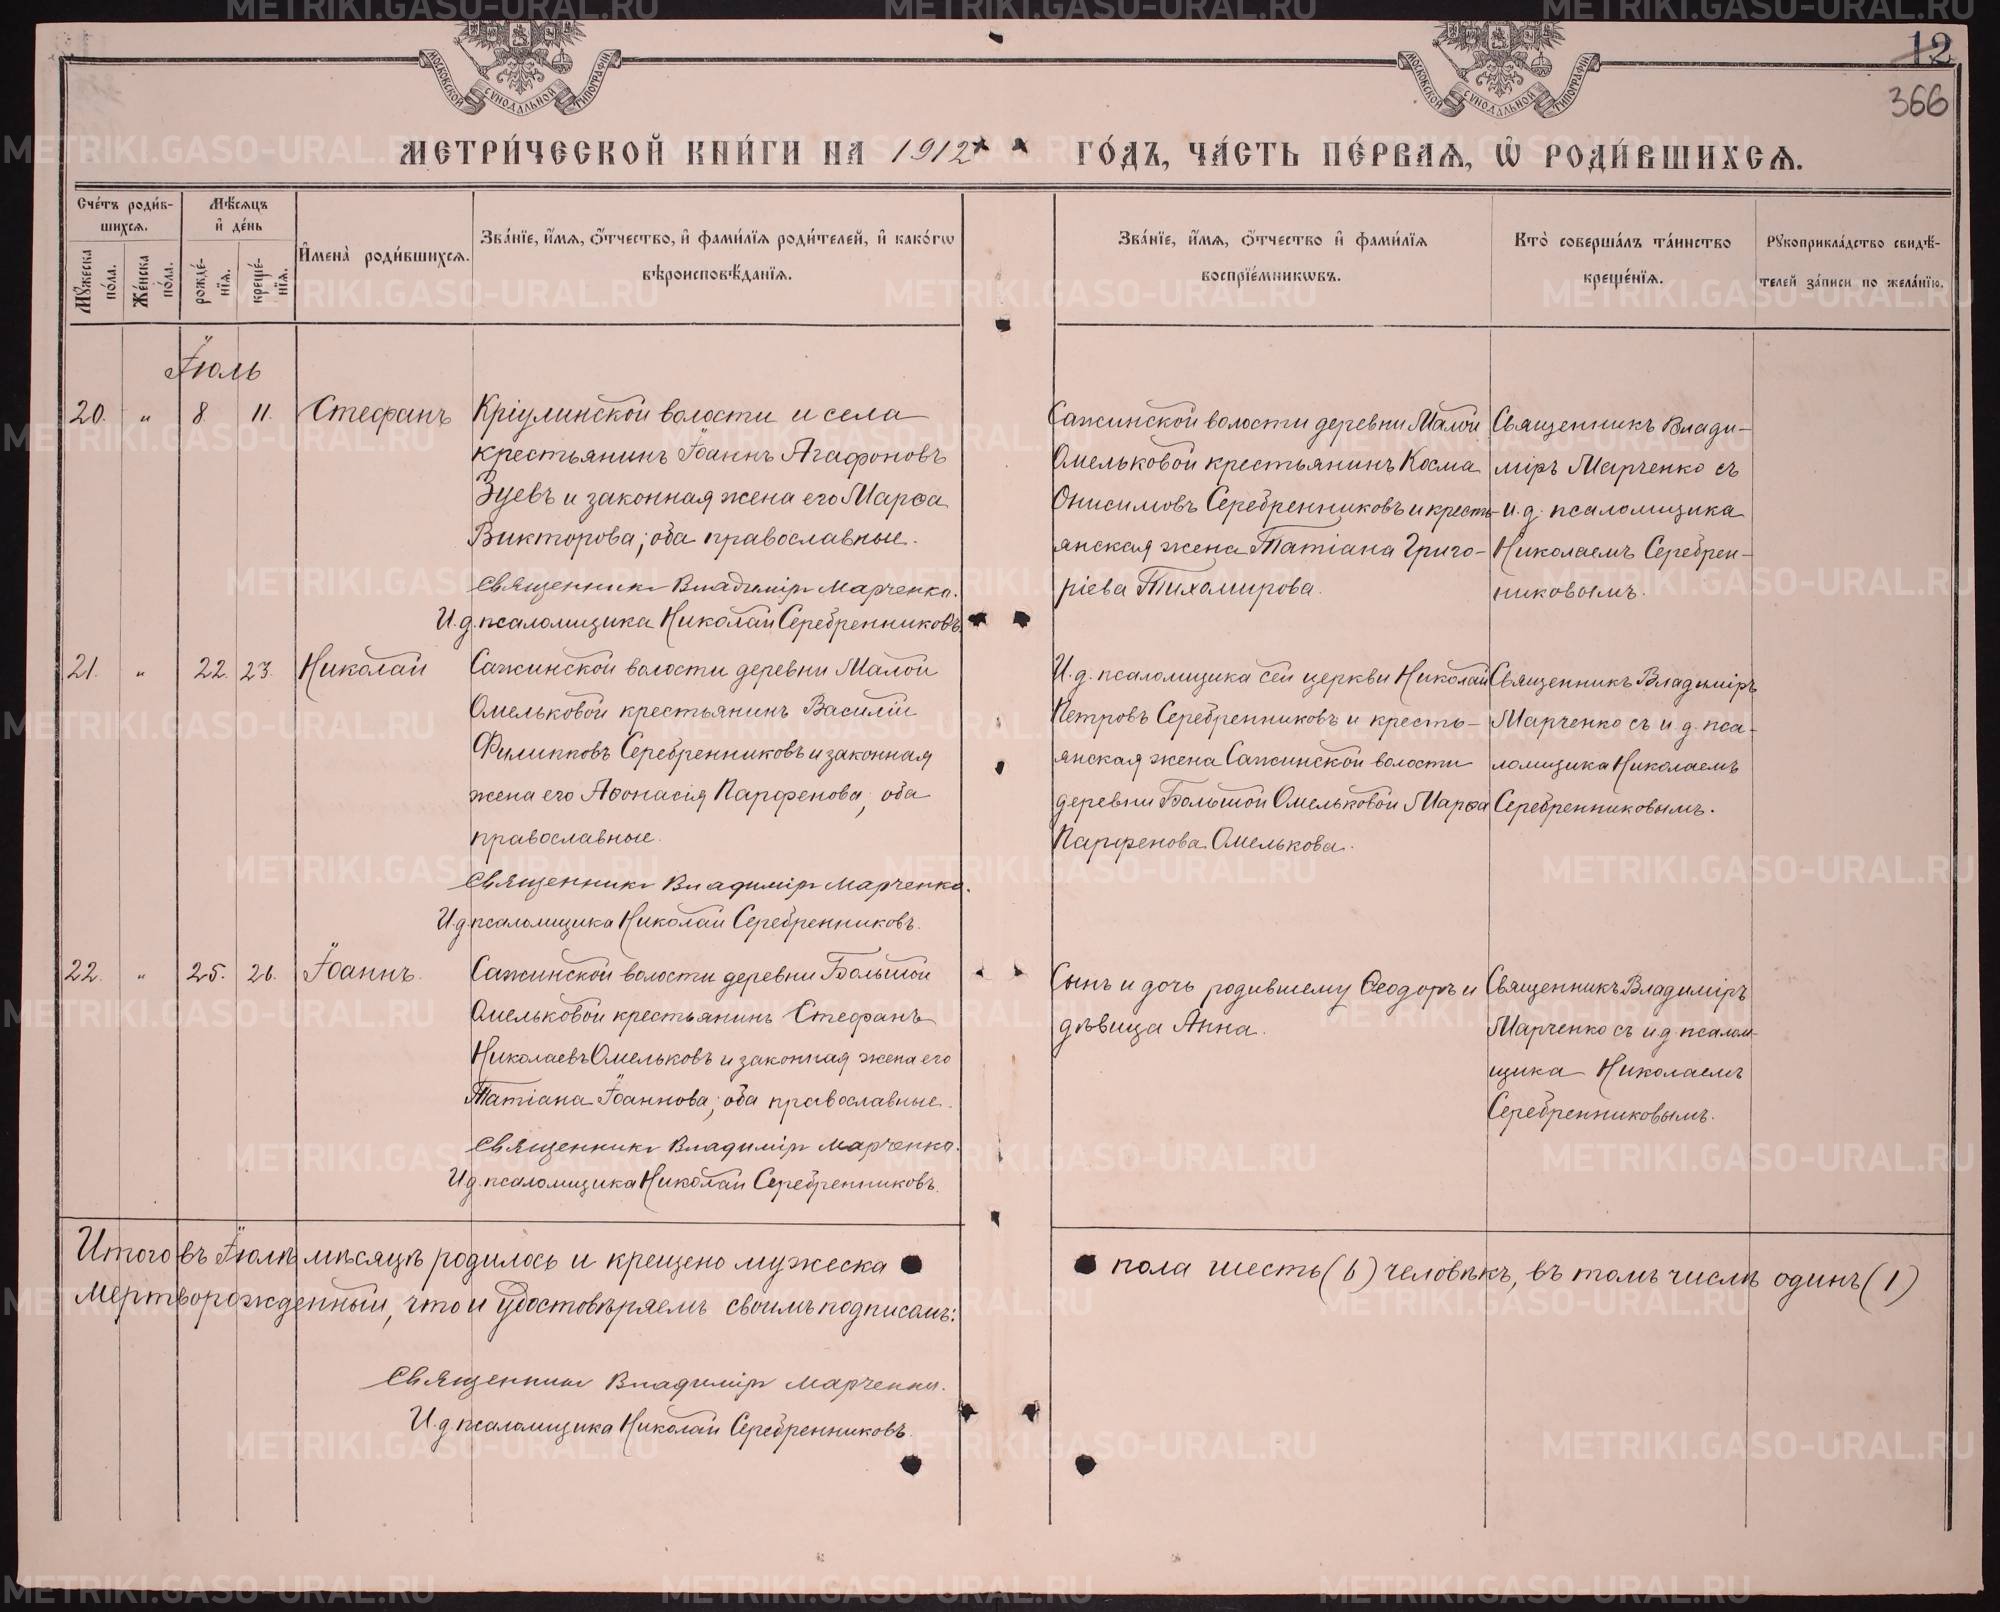 12
366
МОСКОВСКОЙ СѴНОДАЛЬНОЙ ТИПОГРАФІИ
МОСКОВСКОЙ СѴНОДАЛЬНОЙ ТИПОГРАФІИ
МЕТРИ́ЧЕСКОЙ КНИ́ГИ НА 1912 ГО́ДЪ, ЧА́СТЬ ПЕ́РВАѦ, Ѡ҆ РОДИ́ВШИХСѦ.
Сче́тъ роди́в-
шихсѧ.
Мꙋ́жеска по́ла.
Же́нска по́ла.
Мѣ́сѧцъ
и҆ де́нь
рожде́-
нїѧ.
креще́-
нїѧ.
И҆мена̀ роди́вшихсѧ.
Зва́нїе, и҆́мѧ, ѻ҆́тчество, и҆ фами́лїѧ роди́телей, и҆ како́гѡ
вѣроисповѣ́данїѧ.
Зва́нїе, и҆́мѧ, ѻ҆́тчество и҆ фами́лїѧ
воспрїе́мникѡвъ.
Кто̀ соверша́лъ та́инство
креще́нїѧ.
Рꙋкоприкла́дство свидѣ́-
телей за́писи по жела́нїю.
Іюль
20. " 8. 11. Стефанъ
Кріулинской волости и села
крестьянинъ Іоаннъ Агафоновъ
Зуевъ и законная жена его Марѳа
Викторова; оба православные.
Священникъ Владиміръ Марченко.
И.д. псаломщика Николай Серебренниковъ
Сажинской волости деревни Малой
Омельковой крестьянинъ Косма
Онисимовъ Серебренниковъ и кресть-
янская жена Татіана Григо-
ріева Тихомирова.
Священникъ Влади-
міръ Марченко съ
и.д. псаломщика
Николаемъ Серебрен-
никовымъ.
21. " 22. 23. Николай
Сажинской волости деревни Малой
Омельковой крестьянинъ Василій
Филипповъ Серебренниковъ и законная
жена его Аѳонасія Парфенова; оба
православные.
Священникъ Владиміръ Марченко.
И.д. псаломщика Николай Серебренниковъ.
И.д. псаломщика сей церкви Николай
Петровъ Серебренниковъ и кресть-
янская жена Сажинской волости
деревни Большой Омельковой Марѳа
Парфенова Омелькова.
Священникъ Владиміръ
Марченко съ и.д. пса-
ломщика Николаемъ
Серебренниковымъ.
22. " 25. 26. Іоаннъ.
Сажинской волости деревни Большой
Омельковой крестьянинъ Стефанъ
Николаевъ Омельковъ и законная жена его
Татіана Іоаннова; оба православные.
Священникъ Владиміръ Марченко.
И.д. псаломщика Николай Серебренниковъ.
Сынъ и дочь родившему Ѳеодоръ и
дѣвица Анна.
Священникъ Владиміръ
Марченко съ и.д. псалом-
щика Николаемъ
Серебренниковымъ.
Итого въ Іюлѣ мѣсяцѣ родилось и крещено мужеска пола шесть (6) человѣкъ, въ томъ числѣ одинъ (1)
мертворожденный, что и удостовѣряемъ своимъ подписомъ:
Священникъ Владиміръ Марченко.
И.д. псаломщика Николай Серебренниковъ.
METRIKI.GASO-URAL.RU